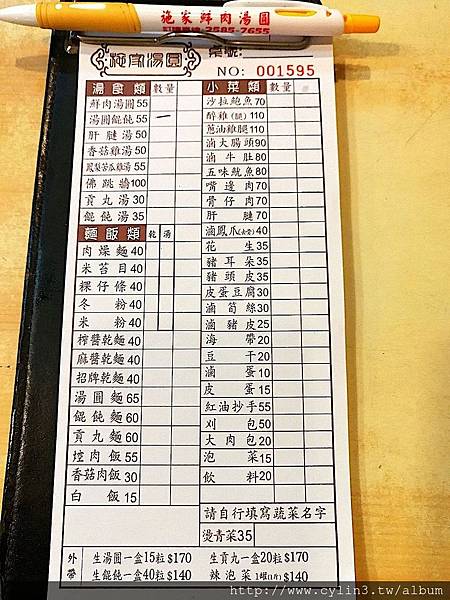 施家鮮肉湯圓
2585-7655
施家湯圓
桌號:
NO: 001595
湯食類 數量
鮮肉湯圓55
湯圓餛飩55 一
肝腱湯50
香菇雞湯50
鳳梨苦瓜雞湯55
佛跳牆100
貢丸湯30
餛飩湯35
麵飯類 乾 湯
肉燥麵40
米苔目40
粿仔條40
冬粉40
米粉40
榨醬乾麵40
麻醬乾麵40
招牌乾麵40
湯圓麵65
餛飩麵60
貢丸麵60
焢肉飯55
香菇肉飯30
白飯15
小菜類 數量
沙拉鮑魚70
醉雞(腿)110
蔥油雞腿110
滷大腸頭90
滷牛肚80
五味魷魚80
嘴邊肉70
骨仔肉70
肝腱70
滷鳳爪(去骨)40
花生35
豬耳朵35
豬頭皮35
皮蛋豆腐30
滷筍絲30
滷豬皮25
海帶20
豆干20
滷蛋10
皮蛋15
紅油抄手55
刈包50
大肉包20
泡菜15
飲料20
請自行填寫蔬菜名字
燙青菜35
外帶
生湯圓一盒15粒$170
生貢丸一盒20粒$170
生餛飩一盒40粒$140
辣泡菜1罐(1斤)$140
http://www.cylin3.tw/album